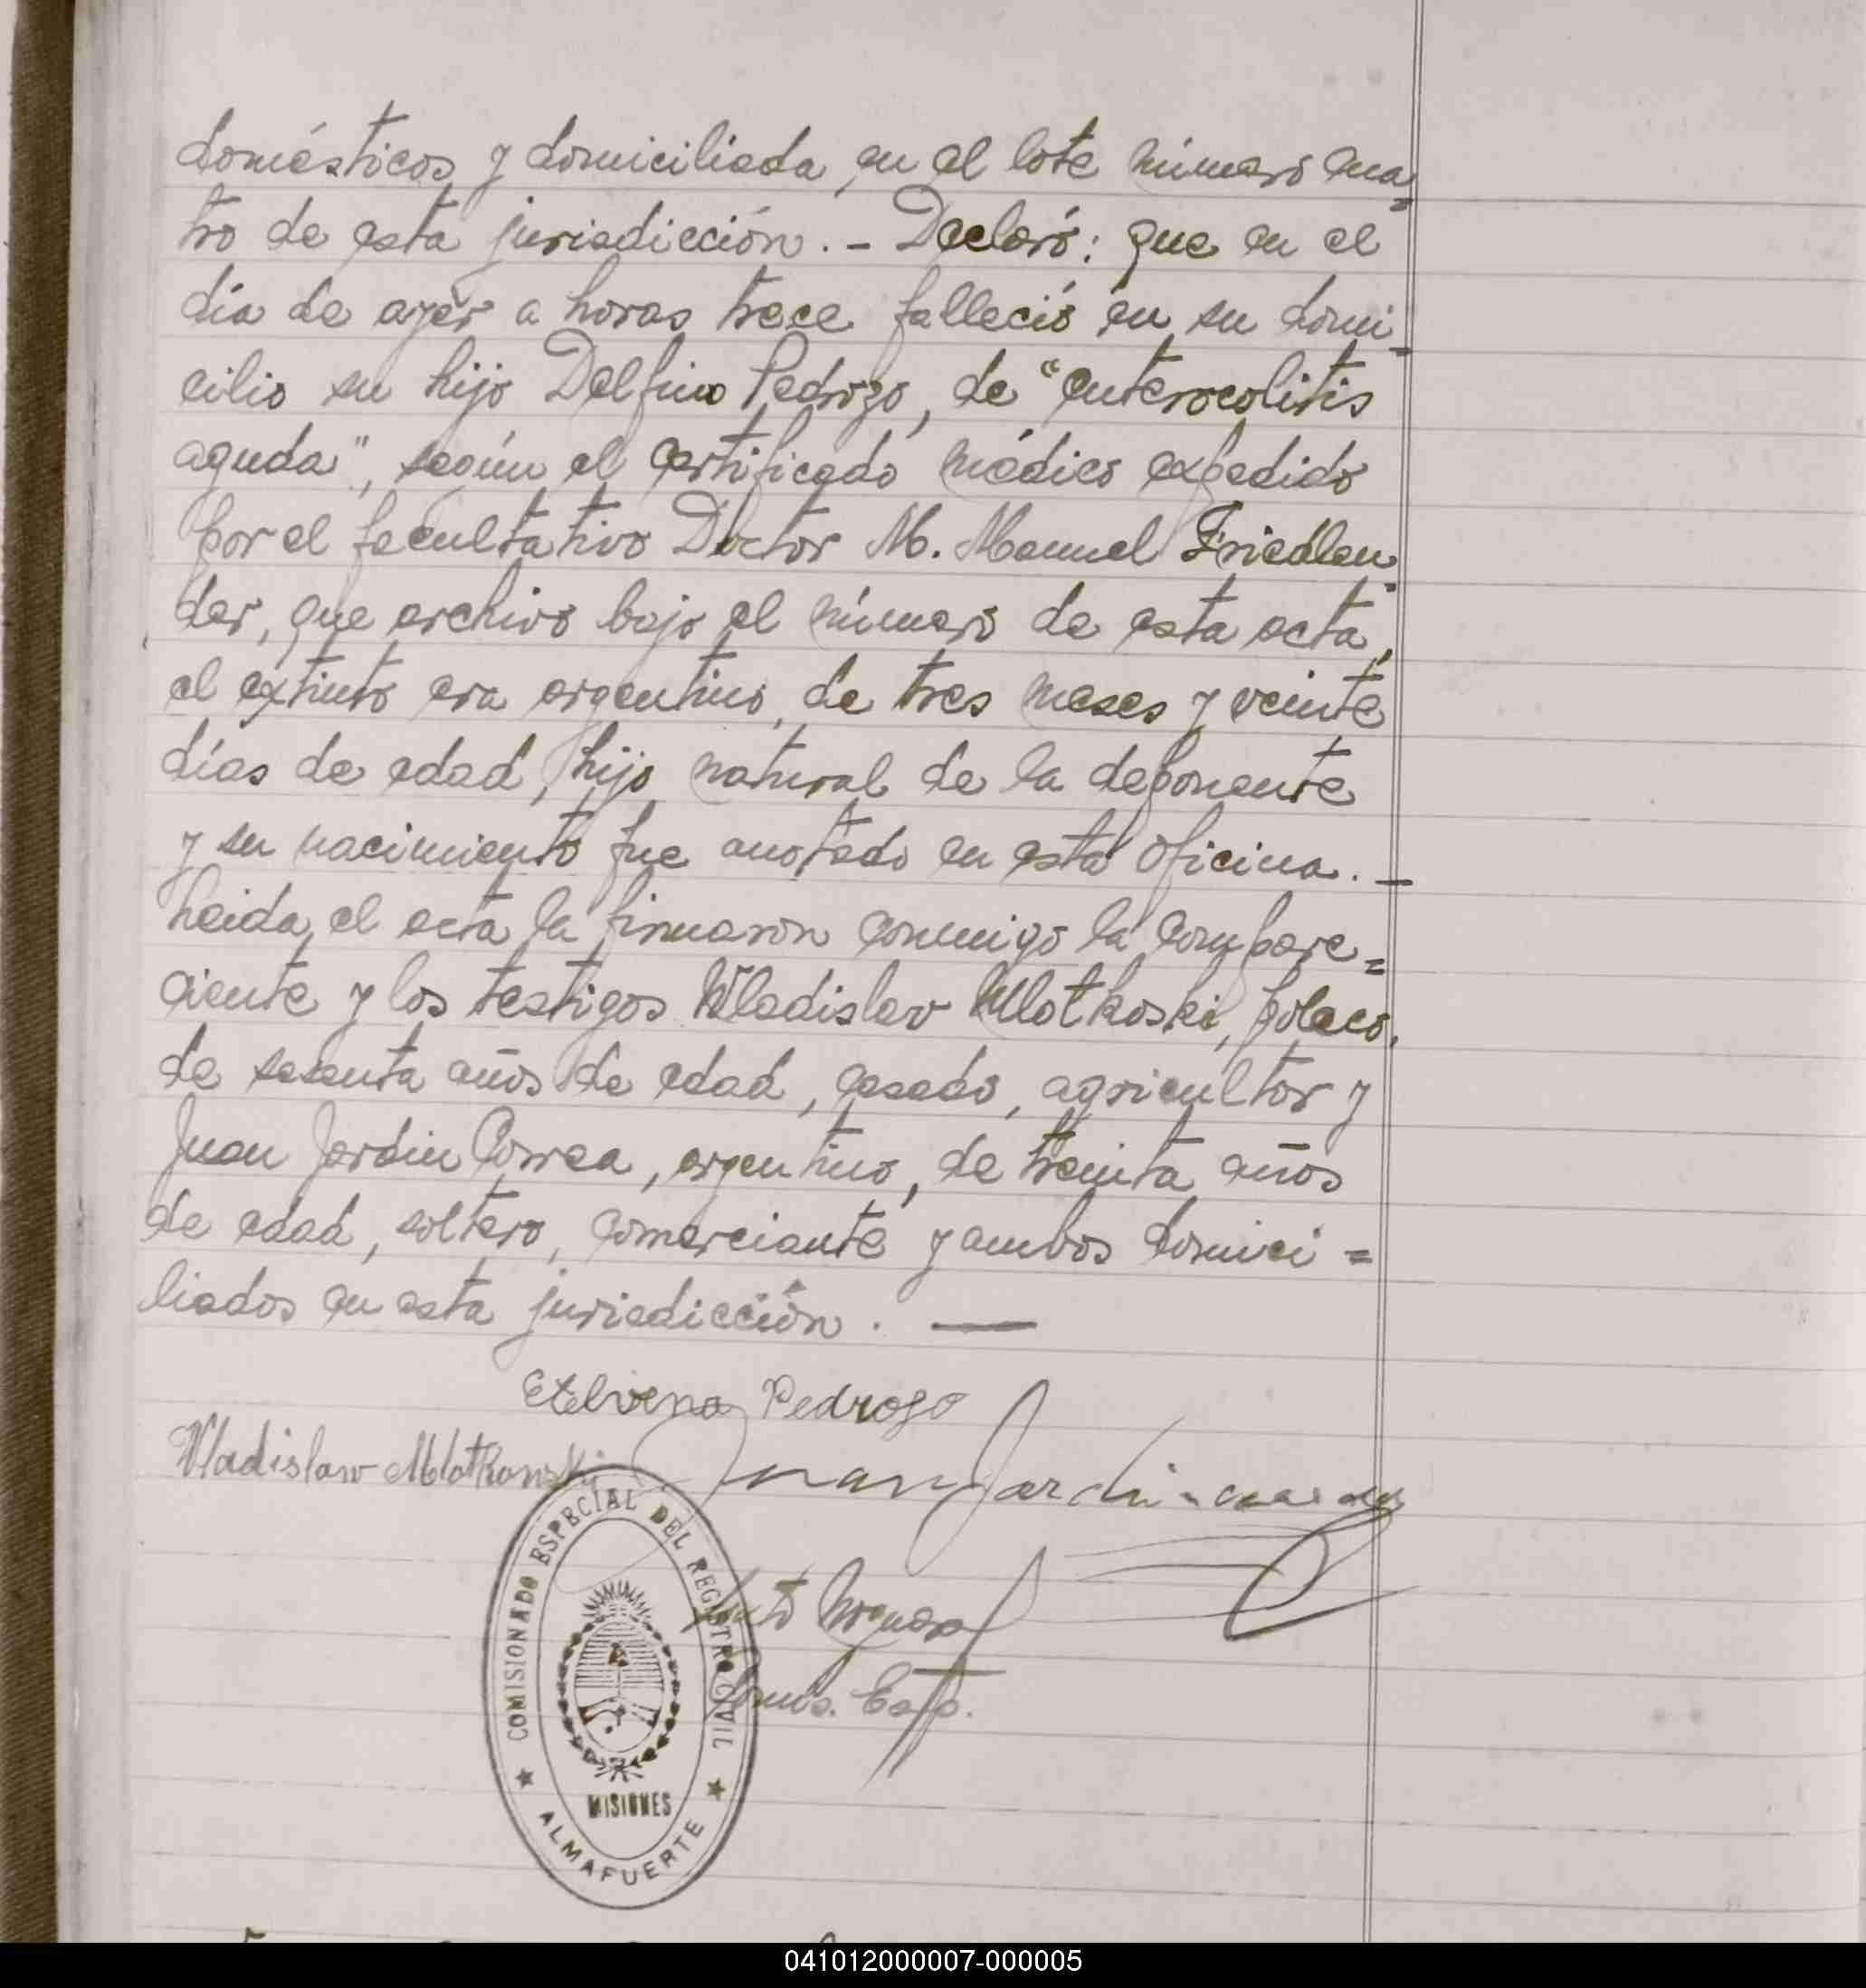 domésticos y domiciliada en el lote número cua=
tro de esta jurisdicción. - Declaró: que en el
día de ayer a horas trece falleció en su domi=
cilio su hijo Delfino Pedrozo, de "enterocolitis
aguda", según el certificado médico expedido
por el facultativo Doctor M. Manuel Friedlen=
der, que archivo bajo el número de esta acta,
el extinto era argentino, de tres meses y veinte
días de edad, hijo natural de la deponente
y su nacimiento fue anotado en esta oficina. —
Leida el acta la firmaron conmigo la compare=
ciente y los testigos Wladislav Mlotkoski, polaco,
de sesenta años de edad, casado, agricultor y
Juan Jardin Correa, argentino, de treinta años
de edad, soltero, comerciante y ambos domici=
liados en esta jurisdicción. —
Etelvena Pedroso
Wladislaw Mlotkowski
Juan Jardin
COMISIONADO ESPECIAL DEL REGISTRO CIVIL
MISIONES
ALMAFUERTE
041012000007-000005